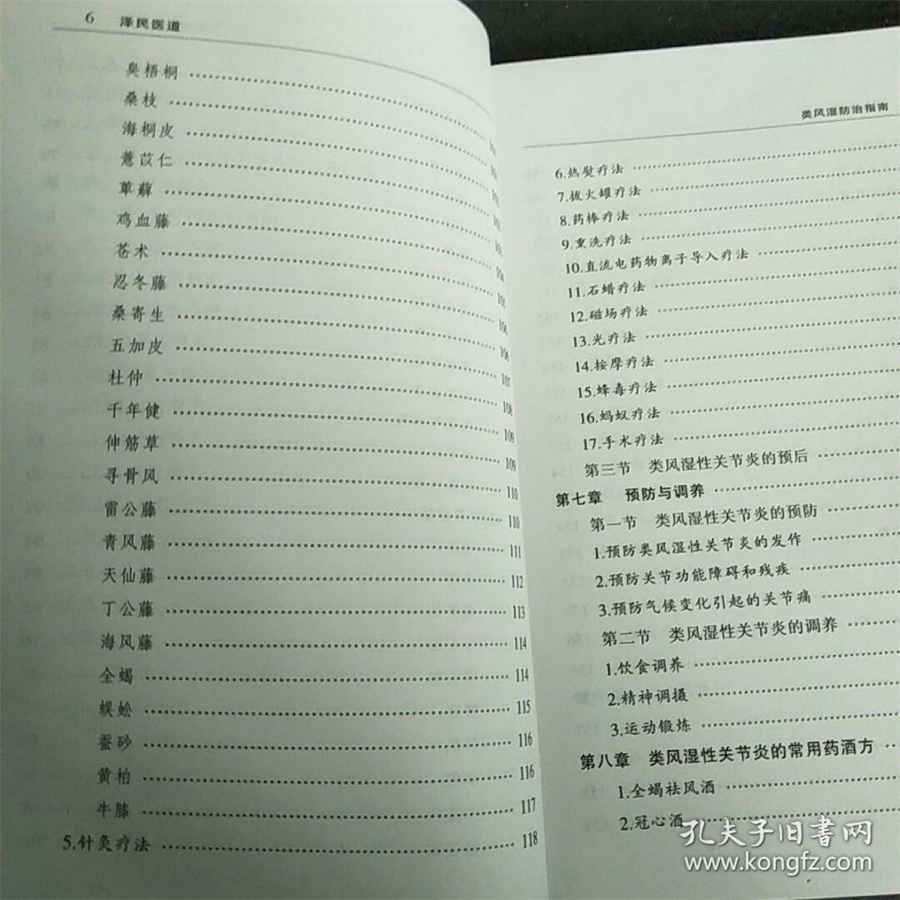 6 泽民医道
臭梧桐
桑枝
海桐皮
薏苡仁
萆薢
鸡血藤
苍术
忍冬藤
桑寄生
五加皮 106
杜仲 107
千年健 108
伸筋草 109
寻骨风 110
雷公藤 110
青风藤 111
天仙藤 112
丁公藤 113
海风藤 114
全蝎 114
蜈蚣 115
蚕砂 116
黄柏 116
牛膝 117
5.针灸疗法 118
类风湿防治指南
6.热熨疗法
7.拔火罐疗法
8.药棒疗法
9.熏洗疗法
10.直流电药物离子导入疗法
11.石蜡疗法
12.磁场疗法
13.光疗法
14.按摩疗法
15.蜂毒疗法
16.蚂蚁疗法
17.手术疗法
第三节 类风湿性关节炎的预后
第七章 预防与调养
第一节 类风湿性关节炎的预防
1.预防类风湿性关节炎的发作
2.预防关节功能障碍和残疾
3.预防气候变化引起的关节痛
第二节 类风湿性关节炎的调养
1.饮食调养
2.精神调摄
3.运动锻炼
第八章 类风湿性关节炎的常用药酒方
1.全蝎祛风酒
2.冠心酒
孔夫子旧书网
www.kongfz.com